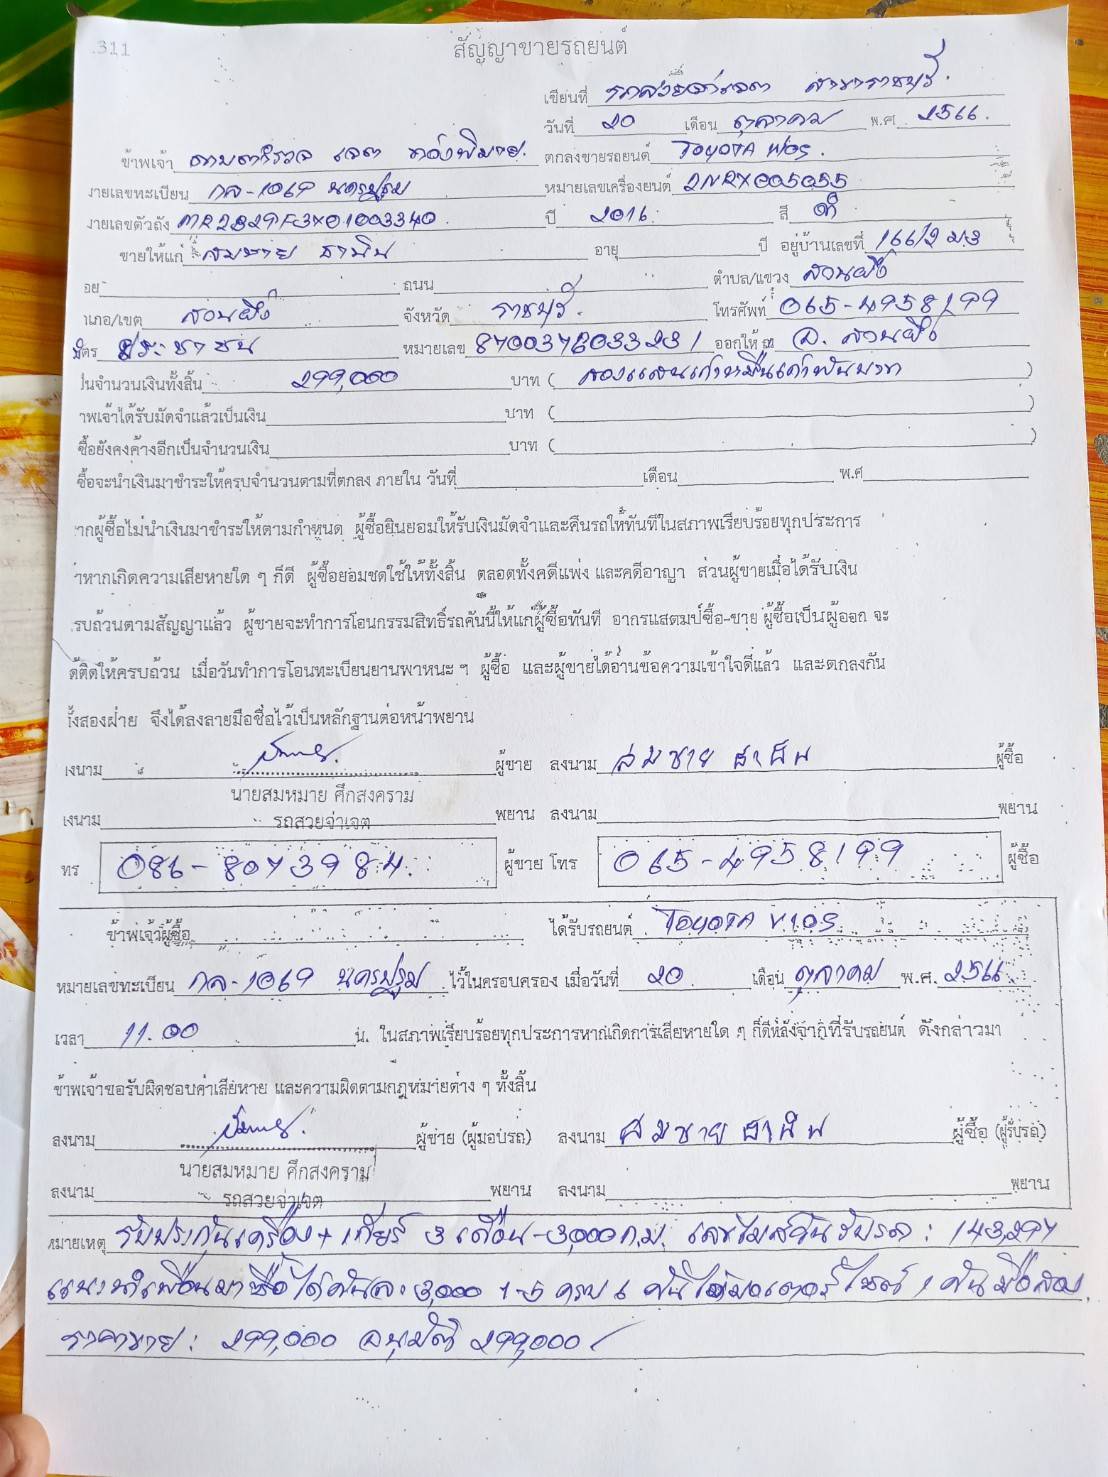 .311
สัญญาขายรถยนต์
เขียนที่ รถสวยจ่าเจต สาขาราชบุรี.
วันที่ 20 เดือน ตุลาคม พ.ศ. 2566.
ข้าพเจ้า ดาบตำรวจ เจต ตกลงขายรถยนต์ TOYOTA VIOS.
มายเลขทะเบียน กล-1069 นครปฐม หมายเลขเครื่องยนต์ 2NRX005055
มายเลขตัวถัง MR2B29F3X01003340 ปี 2016. สี ดำ
ขายให้แก่ สมชาย อายุ ปี อยู่บ้านเลขที่ 166/2 ม.3
อย ถนน ตำบล/แขวง สวนผึ้ง
าเภอ/เขต สวนผึ้ง จังหวัด ราชบุรี. โทรศัพท์ 065-4958199
บัตร ประชาชน หมายเลข 8700376033231 ออกให้ ณ อ. สวนผึ้ง
ป็นจำนวนเงินทั้งสิ้น 299,000 บาท ( สองแสนเก้าหมื่นเก้าพันบาท )
าพเจ้าได้รับมัดจำแล้วเป็นเงิน บาท ( )
ซื้อยังคงค้างอีกเป็นจำนวนเงิน บาท ( )
ซื้อจะนำเงินมาชำระให้ครบจำนวนตามที่ตกลง ภายใน วันที่ เดือน พ.ศ
ากผู้ซื้อไม่นำเงินมาชำระให้ตามกำหนด ผู้ซื้อยินยอมให้รับเงินมัดจำและคืนรถให้ทันทีในสภาพเรียบร้อยทุกประการ
าหากเกิดความเสียหายใด ๆ ก็ดี ผู้ซื้อยอมชดใช้ให้ทั้งสิ้น ตลอดทั้งคดีแพ่ง และคดีอาญา ส่วนผู้ขายเมื่อได้รับเงิน
รบถ้วนตามสัญญาแล้ว ผู้ขายจะทำการโอนกรรมสิทธิ์รถคันนี้ให้แก่ผู้ซื้อทันที อากรแสตมป์ซื้อ-ขาย ผู้ซื้อเป็นผู้ออก จะ
ต้ติดให้ครบถ้วน เมื่อวันทำการโอนทะเบียนยานพาหนะ ฯ ผู้ซื้อ และผู้ขายได้อ่านข้อความเข้าใจดีแล้ว และตกลงกัน
ั้งสองฝ่าย จึงได้ลงลายมือชื่อไว้เป็นหลักฐานต่อหน้าพยาน
งนาม ผู้ขาย ลงนาม สมชาย ผู้ซื้อ
นายสมหมาย ศึกสงคราม
งนาม รถสวยจ่าเจต พยาน ลงนาม พยาน
ทร 086-8073984. ผู้ขาย โทร 065-4958199 ผู้ซื้อ
ข้าพเจ้าผู้ซื้อ ได้รับรถยนต์ TOYOTA VIOS
หมายเลขทะเบียน กล-1069 นครปฐม ไว้ในครอบครอง เมื่อวันที่ 20 เดือน ตุลาคม พ.ศ. 2566
เวลา 11.00 น. ในสภาพเรียบร้อยทุกประการหากเกิดการเสียหายใด ๆ ก็ดีหลังจากที่รับรถยนต์ ดังกล่าวมา
ข้าพเจ้าขอรับผิดชอบค่าเสียหาย และความผิดตามกฎหมายต่าง ๆ ทั้งสิ้น
ลงนาม ผู้ขาย (ผู้มอบรถ) ลงนาม สมชาย ผู้ซื้อ (ผู้รับรถ)
นายสมหมาย ศึกสงคราม
ลงนาม รถสวยจ่าเจต พยาน ลงนาม พยาน
หมายเหตุ รับประกันเครื่อง+เกียร์ 3 เดือน-3,000 ก.ม. เลขไมล์วันรับรถ : 143,297
แนะนำเพื่อนมาซื้อได้คันละ 3,000 1-5 ครบ 6 คันได้มอเตอร์ไซด์ 1 คัน มือสอง
ราคาขาย : 299,000 อนุมัติ 299,000